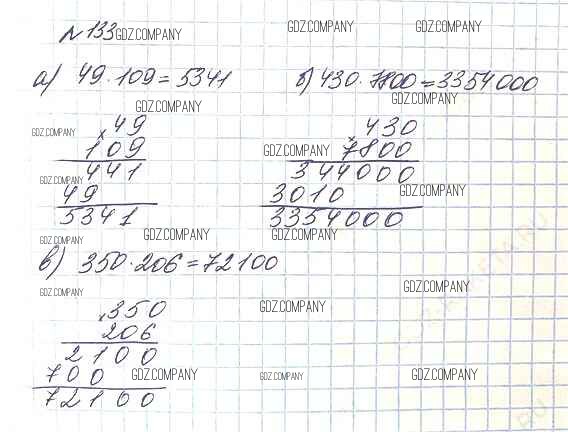 №133 GDZ.COMPANY GDZ.COMPANY GDZ.COMPANY
а) 49·109=5341 б) 430·7800=3354000
GDZ.COMPANY GDZ.COMPANY
GDZ.COMPANY × 49 × 430
109 GDZ.COMPANY 7800
GDZ.COMPANY 441 344000
49 3010 GDZ.COMPANY
5341 3354000
GDZ.COMPANY GDZ.COMPANY GDZ.COMPANY
в) 350·206=72100
GDZ.COMPANY GDZ.COMPANY
× 350 GDZ.COMPANY
206
2100
700 GDZ.COMPANY GDZ.COMPANY GDZ.COMPANY
72100